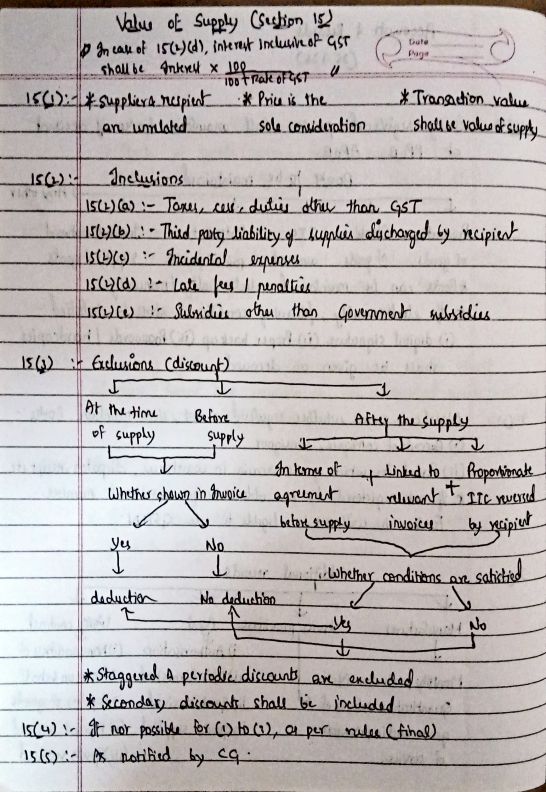 Value of Supply (Section 15)
In case of 15(2)(d), interest inclusive of GST
shall be Interest × 100 / 100 + Rate of GST
Date
Page
15(1):- * Supplier & recipient * Price is the * Transaction value
are unrelated sole consideration shall be value of supply
15(2):- Inclusions
15(2)(a) :- Taxes, cess, duties other than GST
15(2)(b) :- Third party liability of supplier discharged by recipient
15(2)(c) :- Incidental expenses
15(2)(d) :- Late fees / penalties
15(2)(e) :- Subsidies other than Government subsidies
15(3) :- Exclusions (discount)
At the time Before After the supply
of supply supply
In terms of + Linked to + Proportionate
Whether shown in Invoice agreement relevant ITC reversed
before supply invoices by recipient
Yes No
Whether conditions are satisfied
deduction No deduction
Yes No
* Staggered & periodic discounts are excluded
* Secondary discounts shall be included
15(4) :- If not possible for (1) to (2), as per rules (final)
15(5) :- As notified by CG.